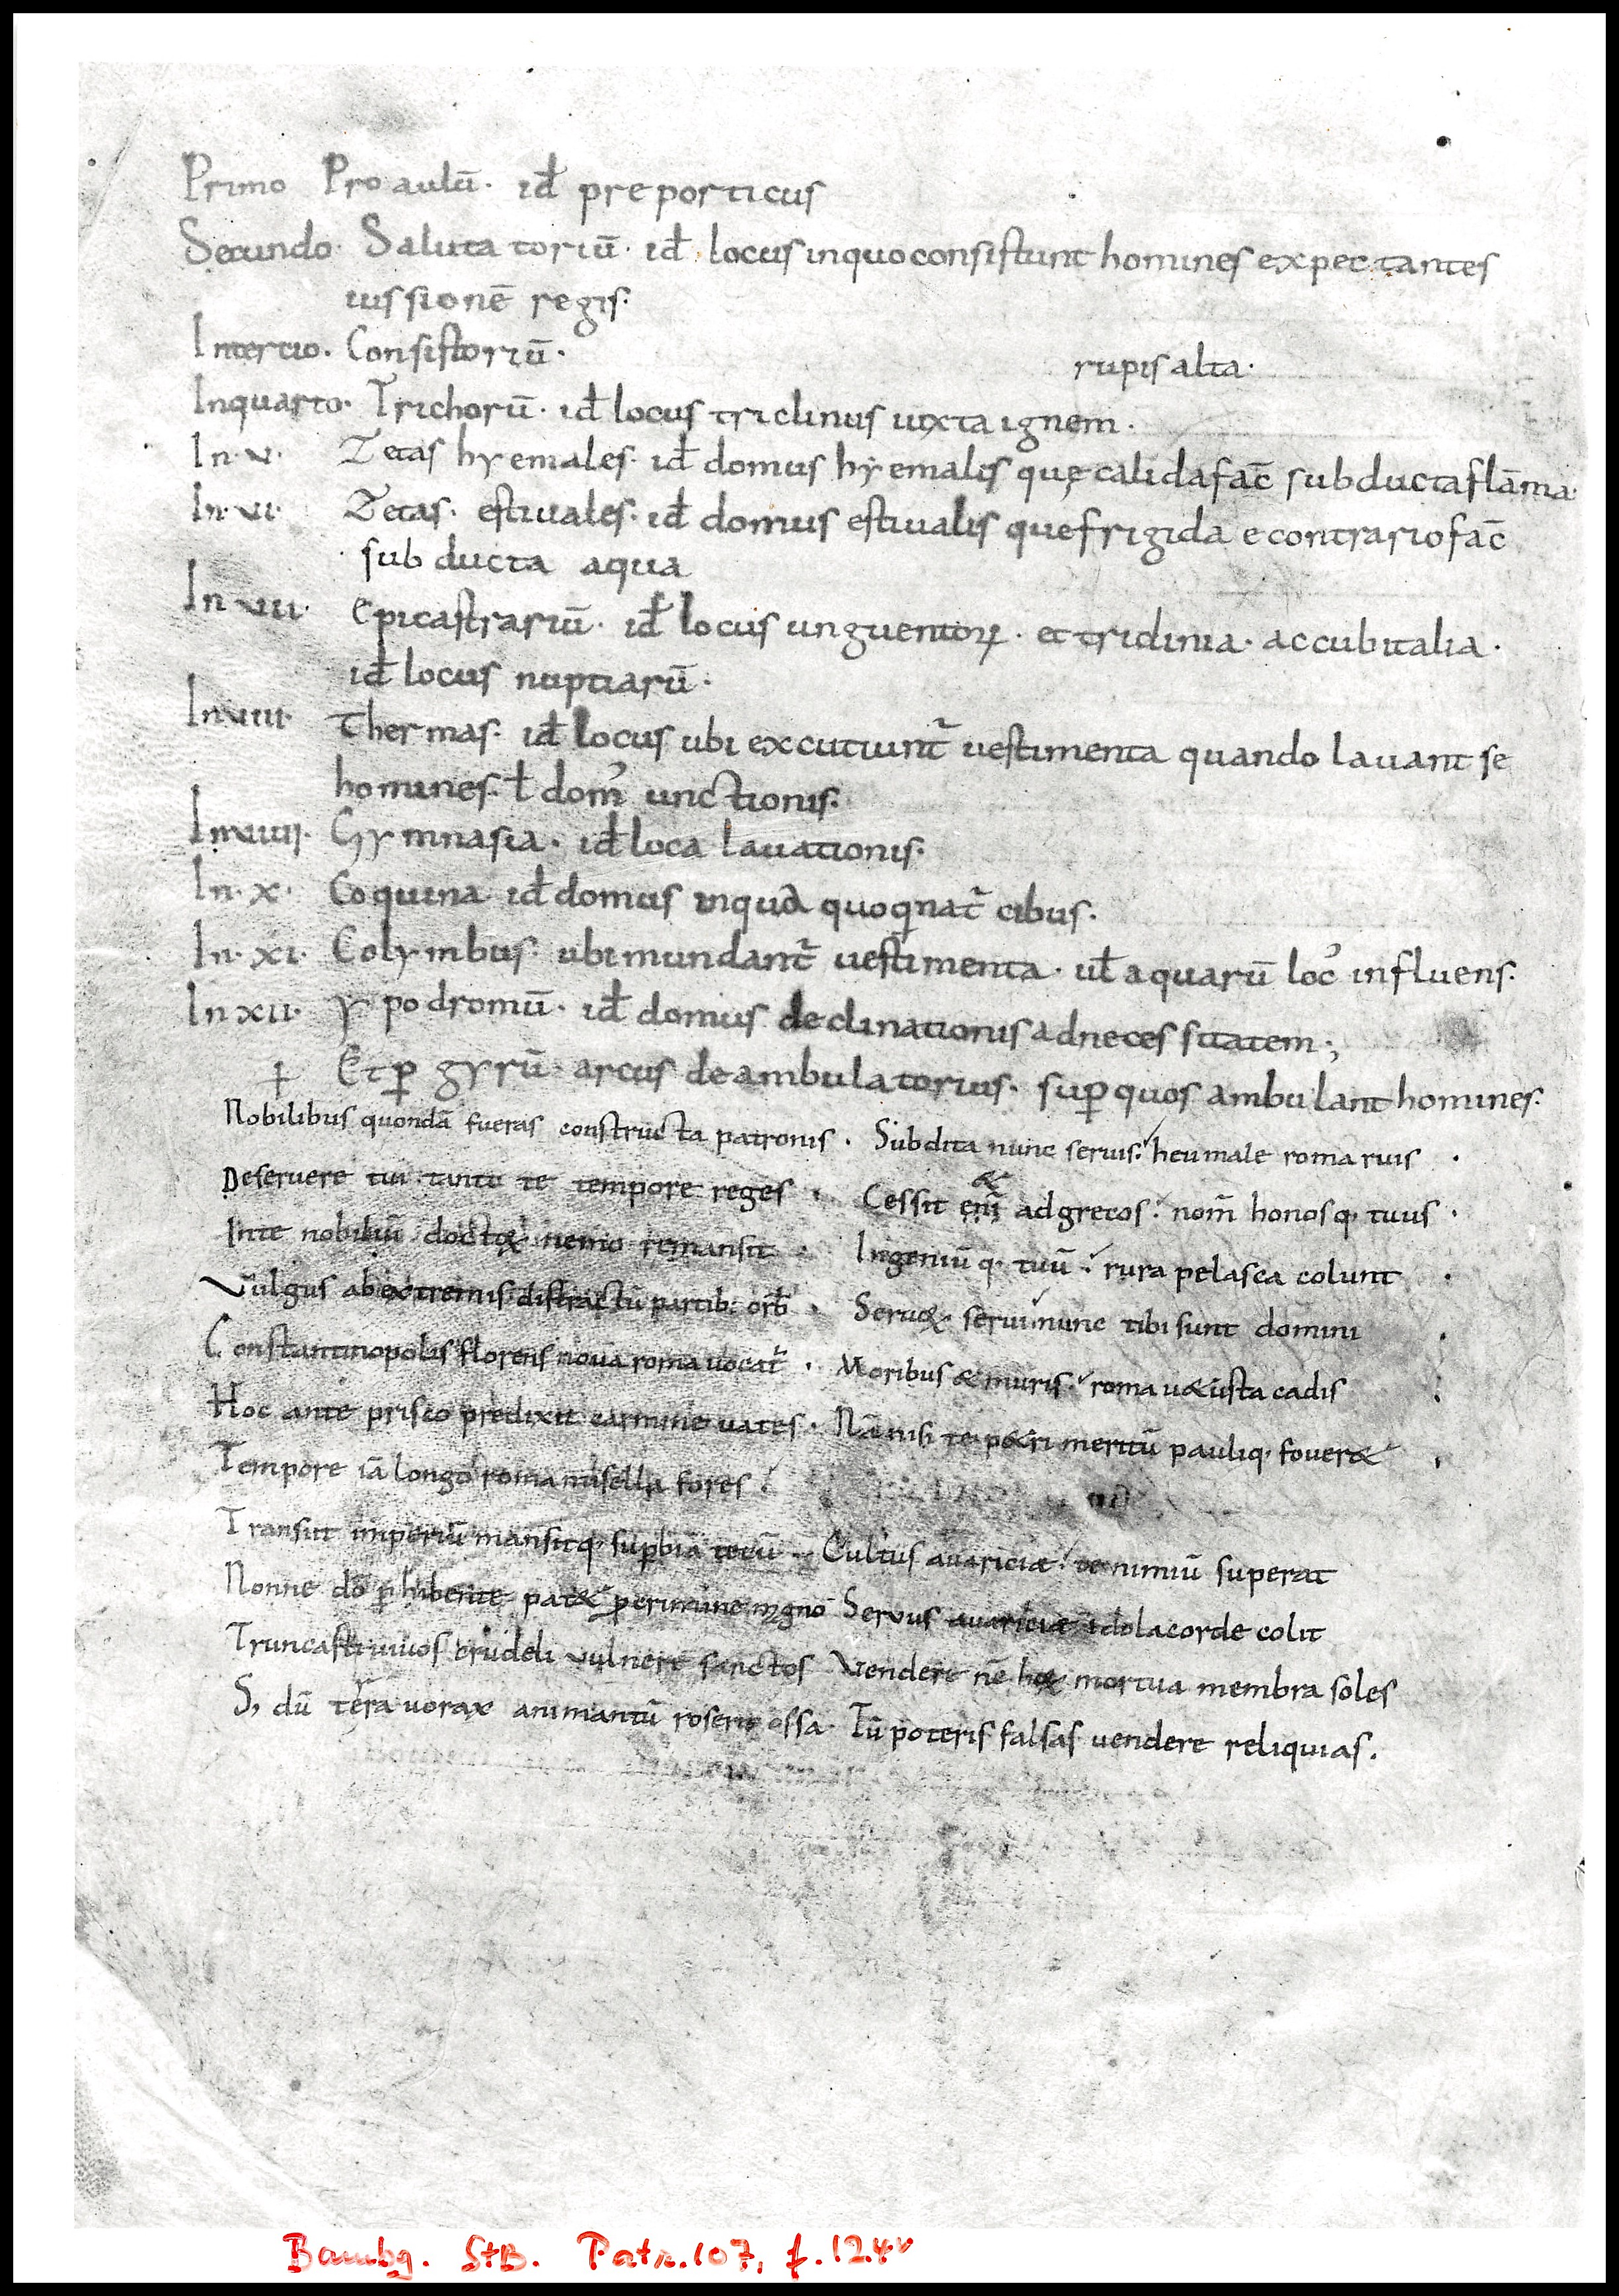 Primo Pro aulū· id̄ pre porticus
Secundo· Saluta toriū· id̄ locus inquo consistunt homines expectantes
iussionē regis·
Intertio· Consistoriū·
rupis alta·
Inquarto· Trichorū· id̄ locus triclinus iuxta ignem·
In·v· Zetas hyemales· id̄ domus hyemalis quę calida fac̄ subducta flāma·
In·vi· Zetas· estiuales· id̄ domus estiualis que frigida econtrario fac̄
sub ducta aqua
In·vii· Epicastrariū· id̄ locus unguentoꝝ· et triclinia· accubitalia·
id̄ locus nuptiarū·
In viii· Thermas· id̄ locus ubi excutiunt᷑ uestimenta quando lauant se
homines· ł domꝰ unctionis·
In viiii· Gymnasia· id̄ loca lauationis·
In·x· Coquina id̄ domus inqua quoqnat᷑ cibus·
In·xi· Colymbus· ubi mundant᷑ uestimenta· ul̄ aquarū locꝰ influens·
In xii· Ypodromū· id̄ domus declinationis adnecessitatem·,
Et ꝑ gyrū· arcus deambulatorius· suꝑ quos ambulant homines·
Nobilibus quondā fueras constructa patronis· Subdita nunc seruis· heu male roma ruis·
Deseruere tui tanto te tempore reges· Cessit & em̄ ad grecos· nom̄ honosq· tuus·
Inte nobiliū doctoꝝ nemo remansit· Ingeniūq· tuū· rura pelasca colunt·
Vulgus ab extremis distractū partib; orb̄· Seruoꝝ serui nunc tibi sunt domini·
Constantinopolis florens noua roma uocat᷑· Moribus & muris· roma u&usta cadis·
Hoc ante prisco predixit carmine uates· Nā nisi te p&ri meritū pauliq· fouer&·
Tempore iā longo roma misella fores·
Transiit imperiū mansitq· suꝑbia tecū· Cultus auariciæ· te nimiū superat
Nonne dō Servus auariciæ idola corde colit
Truncasti uiuos crudeli vulnere sanctos Vendere nē mortua membra soles
S, dū terra uorax animantū roserit ossa· Tū poteris falsas uendere reliquias.
Bambg. StB. Patr. 107, f. 124v